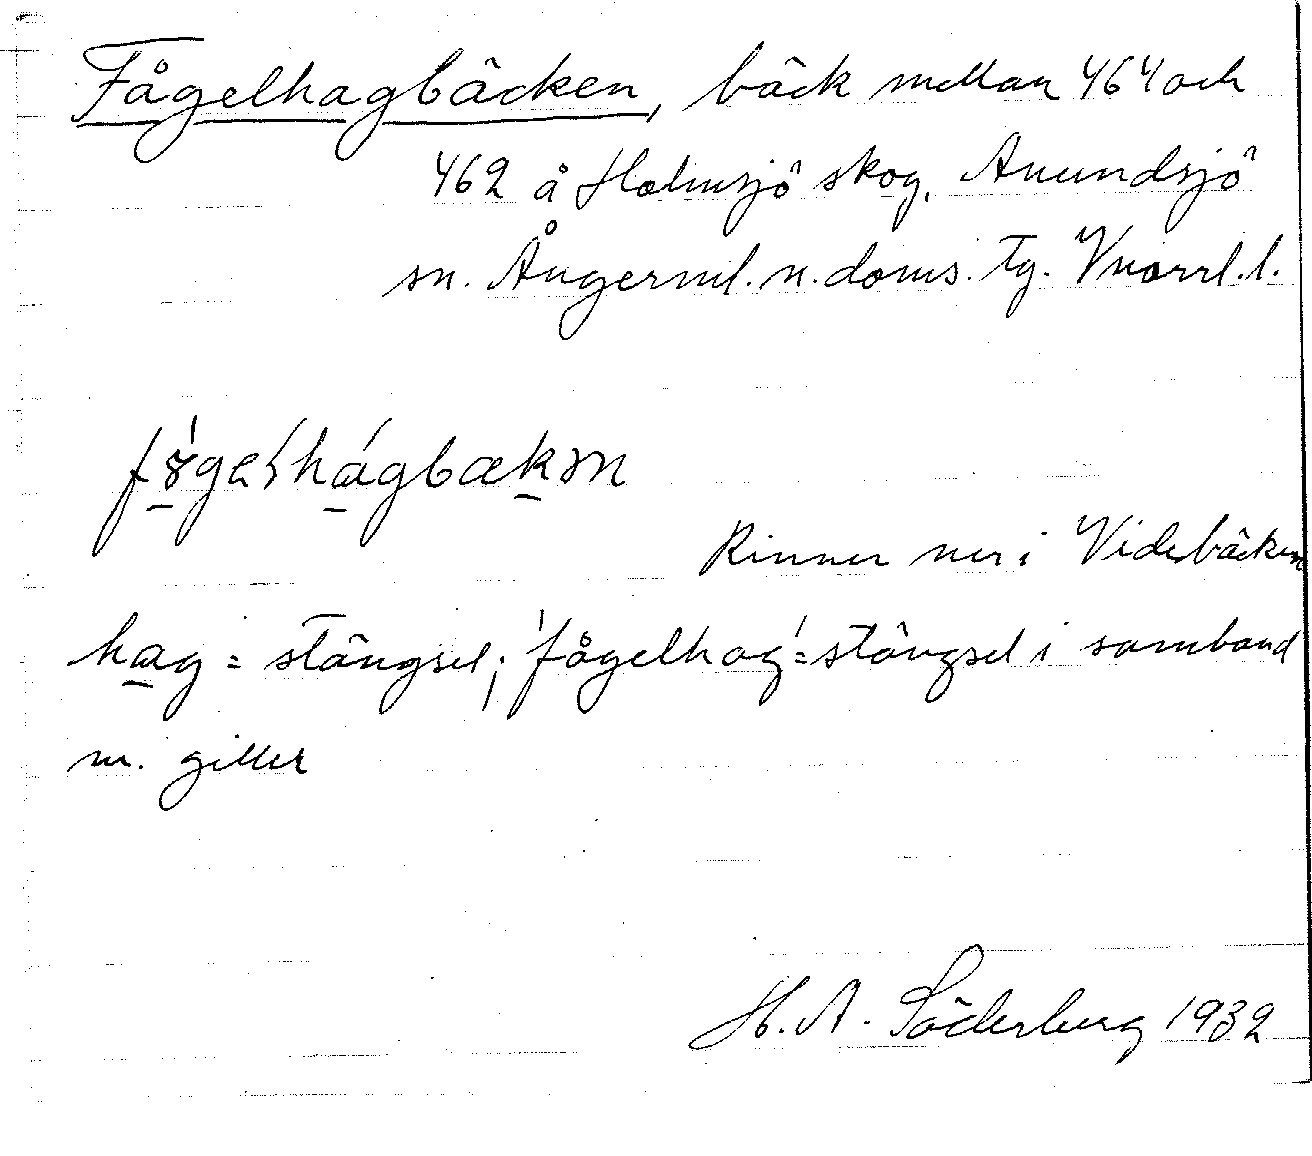 Fågelhagbäcken, bäck mellan 464 och
462 å Holmsjö skog, Anundsjö
sn. Ångerml. n. doms. tg. Vnorrl. l.
Rinner ner i Videsbäcken
hag = stängsel; 'fågelhag' = stängsel i samband
m. giller
H. A. Söderberg 1932